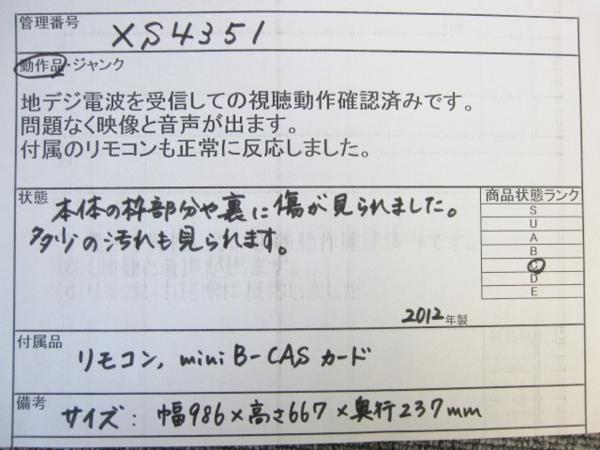 管理番号
XS4351
動作品・ジャンク
地デジ電波を受信しての視聴動作確認済みです。
問題なく映像と音声が出ます。
付属のリモコンも正常に反応しました。
状態
本体の枠部分や裏に傷が見られました。
多少の汚れも見られます。
商品状態ランク
S
U
A
B
C
D
E
2012年製
付属品
リモコン, mini B-CAS カード
備考
サイズ: 幅986×高さ667×奥行237mm